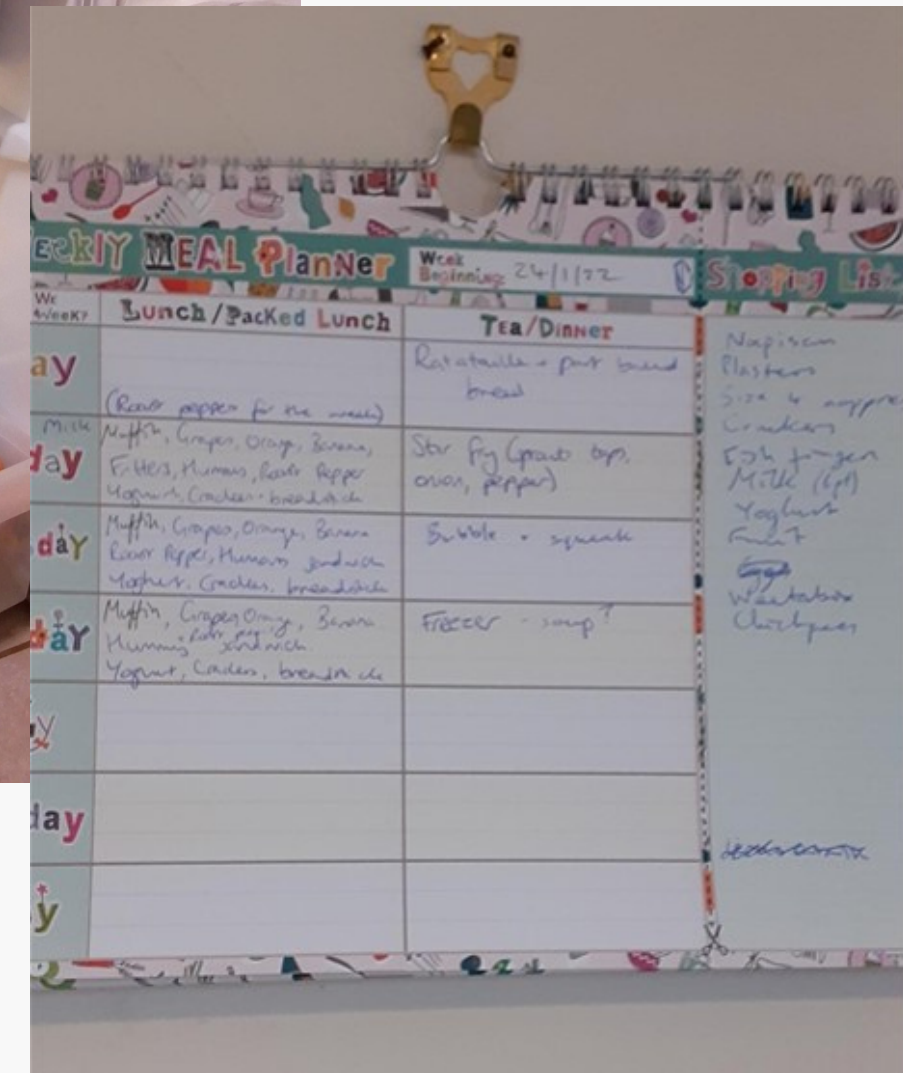 EEKLY MEAL PlanNer
Week
Beginning: 24/1/22
Shopping Lis
We
Week?
Lunch/Packed Lunch
Tea/Dinner
ay
(Roast pepper for the week)
Ratatouille + part baked
bread
Milk
day
Muffin, Grapes, Orange, Banana,
Fritters, Humms, Roast Pepper
Yoghurt, Crackers + breadstick
Stir Fry (sprout tops,
onion, pepper)
day
Muffin, Grapes, Orange, Banana
Roast Pepper, Humms sandwich
Yoghurt, Crackers, breadstick
Bubble + squeak
day
Muffin, Grapes, Orange, Banana
Hummus Roast pep sandwich
Yoghurt, Crackers, breadstick
Freezer - soup?
y
day
y
Napisan
Plasters
Size 4 nappies
Crackers
Fish finger
Milk (6pt)
Yoghurt
Fruit
Weetabix
Chickpeas